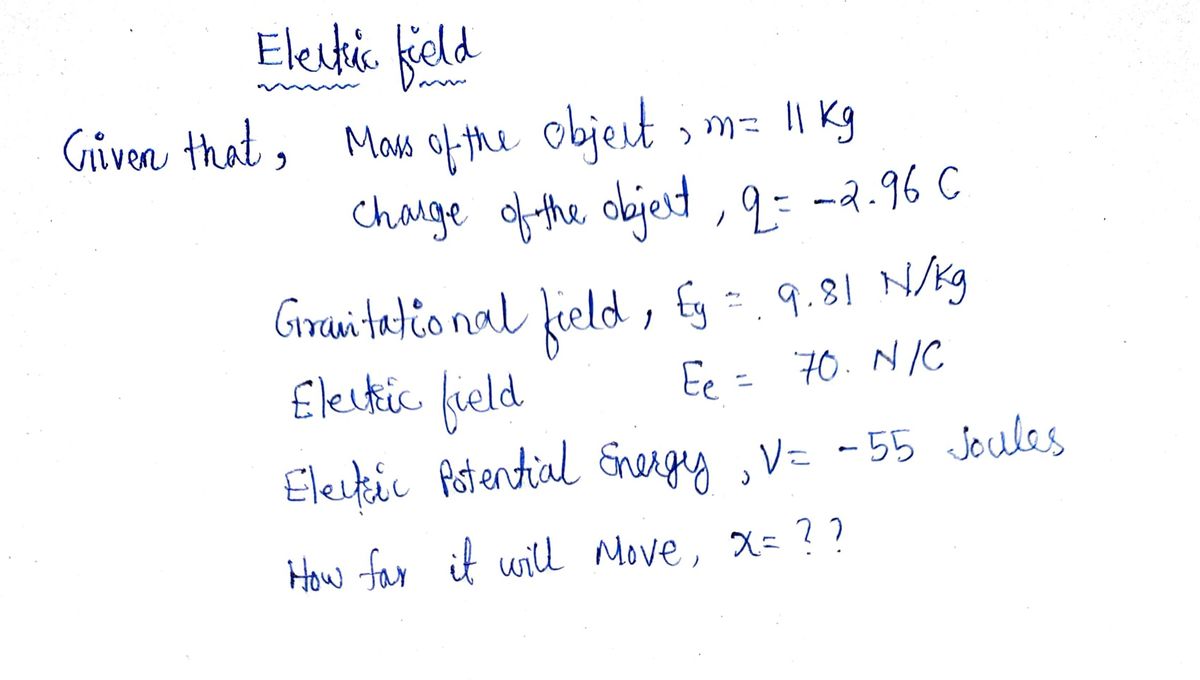 Electric field
Given that, Mass of the object, m= 11 Kg
Charge of the object, q= -2.96 C
Gravitational field, Eg = 9.81 N/Kg
Electric field Ee = 70. N/C
Electric Potential Energy, V= -55 Joules
How far it will Move, x= ??